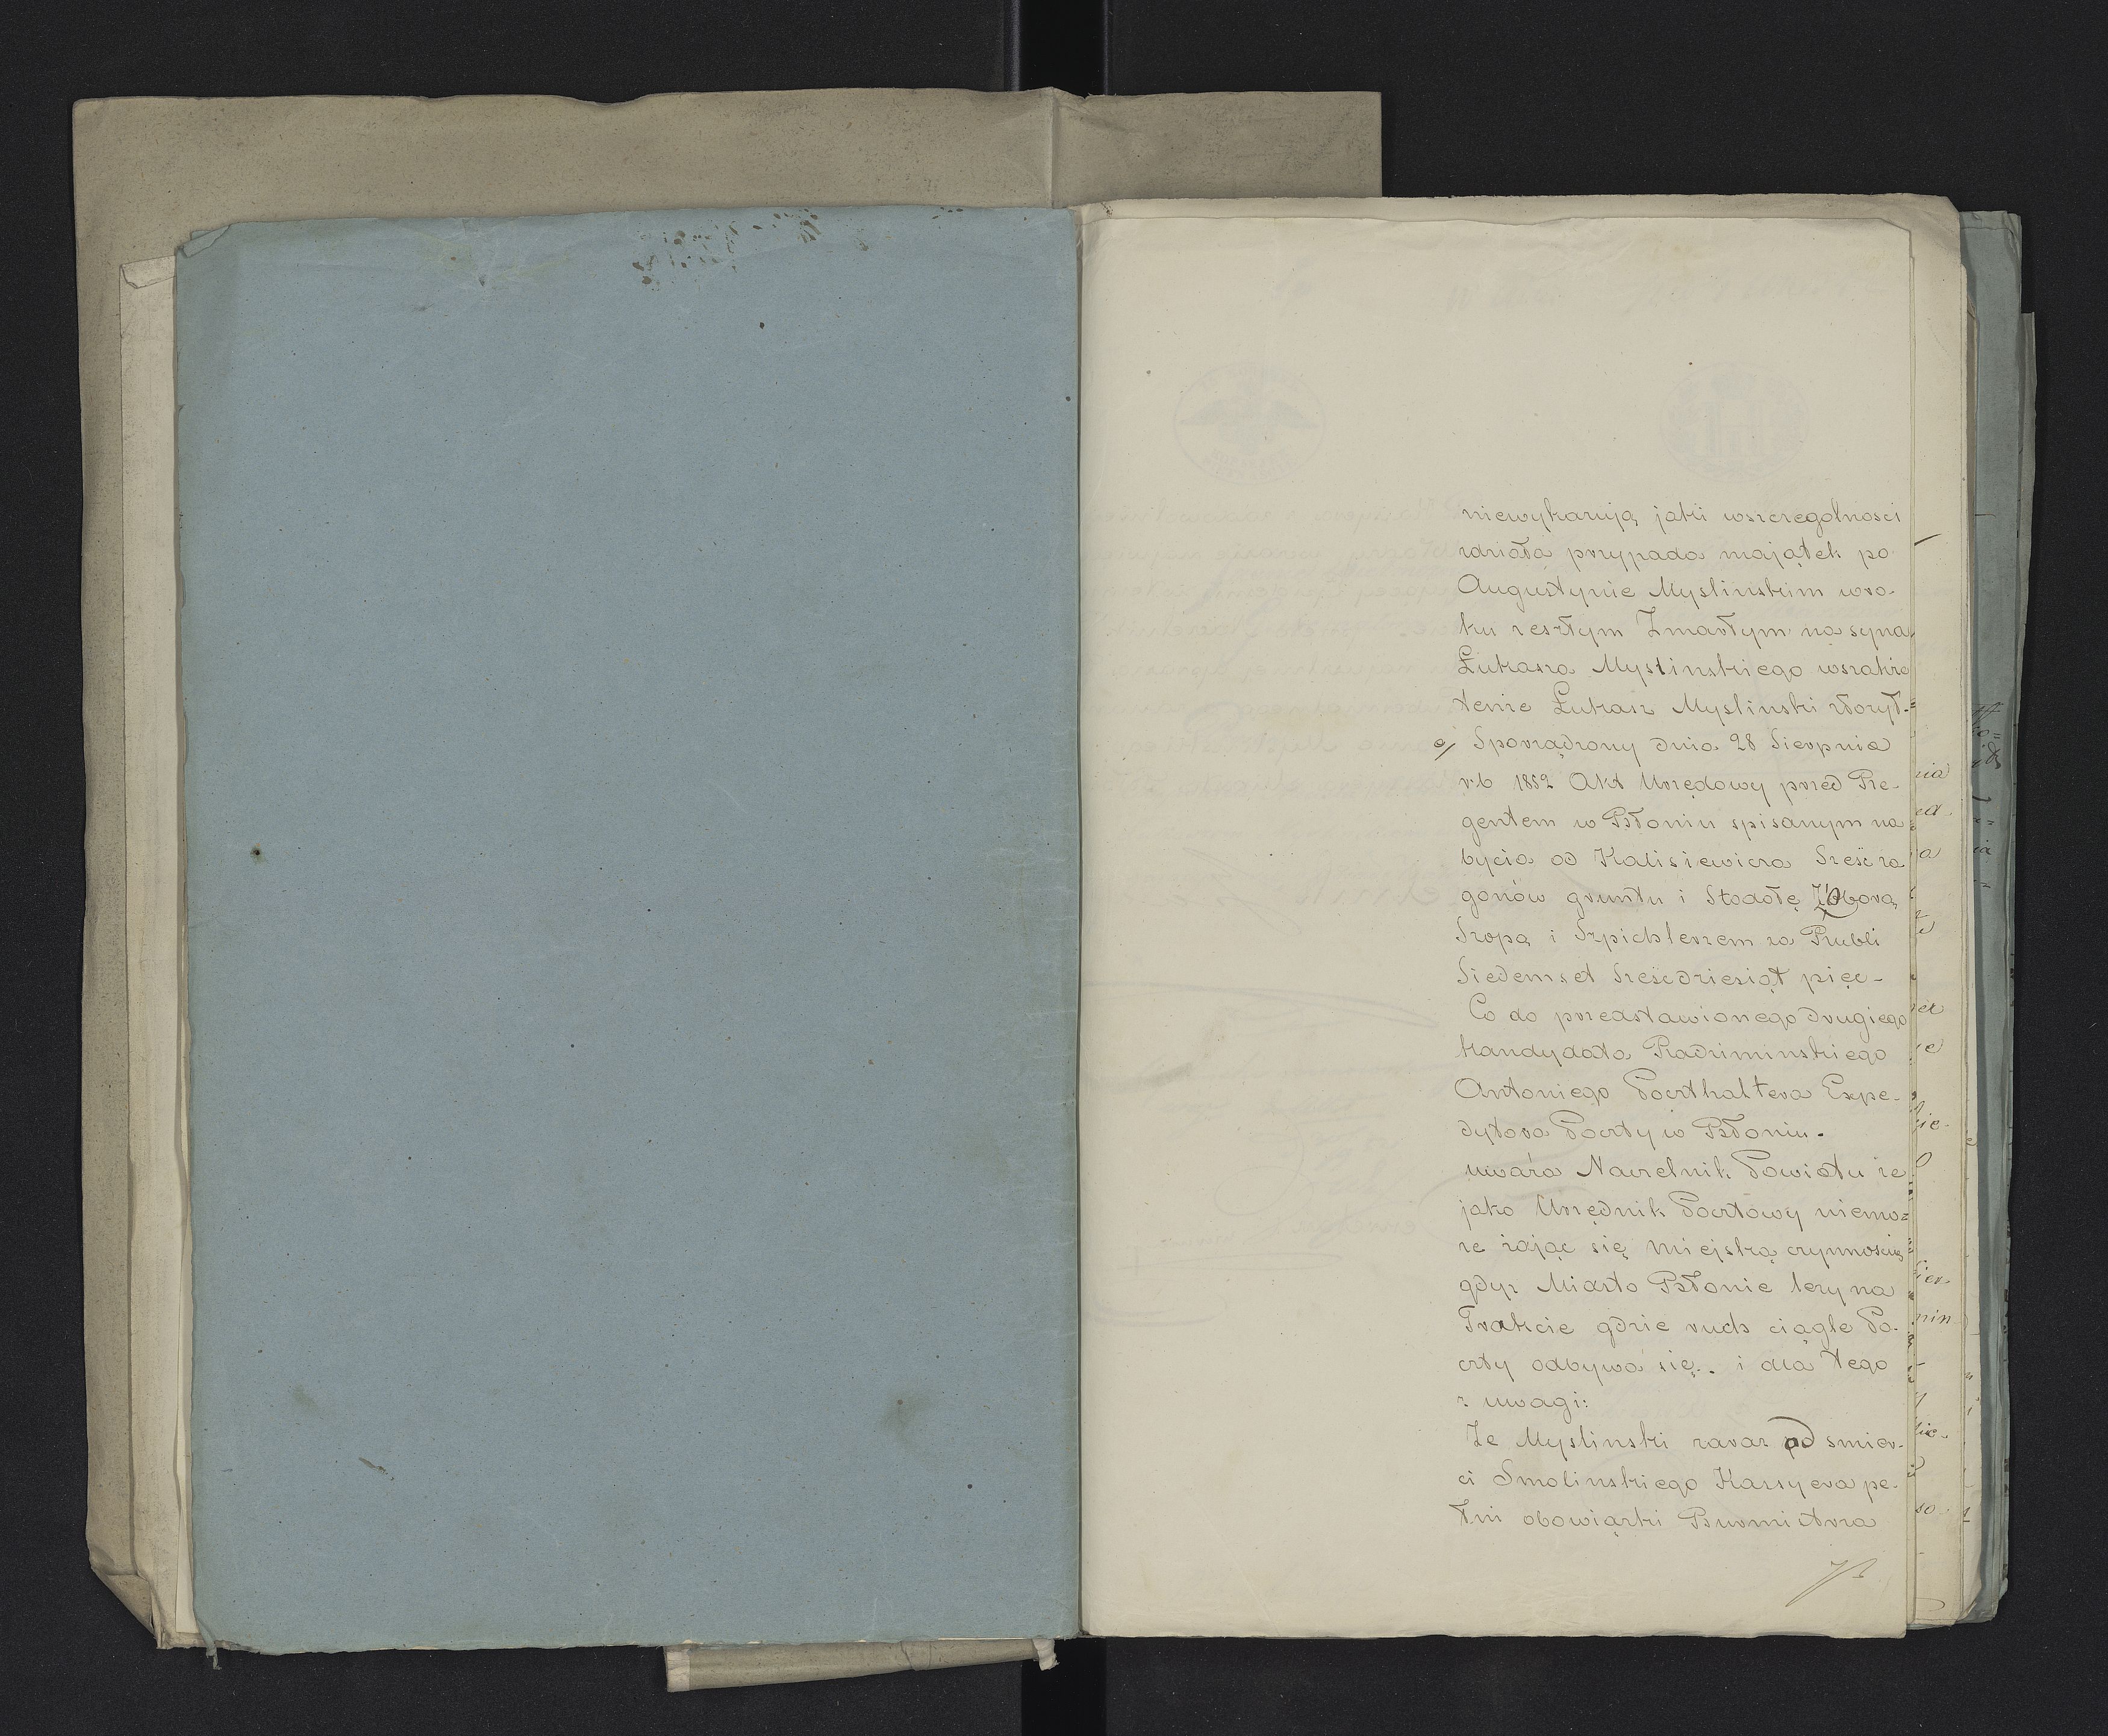 niewykazują jaki wszczegolnosci
zdziała przypada majątek po
Augustynie Myslinskim wro-
ku zeszłym Zmarłym na syna
Łukasza Myslinskiego wszakże
tenze Łukasz Myslinski złozył.
e/ Sporządzony dnia 28 Sierpnia
r.b 1852 Akt Urzędowy przed Re-
gentem w Błoniu spisanym na
bycia od Kalisiewicza Sześć za
gonów gruntu i Stodołę Z Oborą
Szopą i Szpichlerzem za Rubli
Siedemset Sześcdziesiąt pięc-
Co do przedstawionego drugiego
kandydata Radziminskiego
Antoniego Pocrthaltera Expe-
dytora Poczty w Błoniu.
uwaza Naczelnik Powiatu ze
jako Urzędnik Pocztowy niemo=
ze zająć się Miejską czynnoscią
gdyz Miasto Błonie lezy na
Trakcie gdzie ruch ciągle Po-
czty odbywa się. i dla tego
z uwagi:
Ze Myslinski zaraz od smier-
ci Smolinskiego Kassyera pe-
łni obowiązki Burmistrza